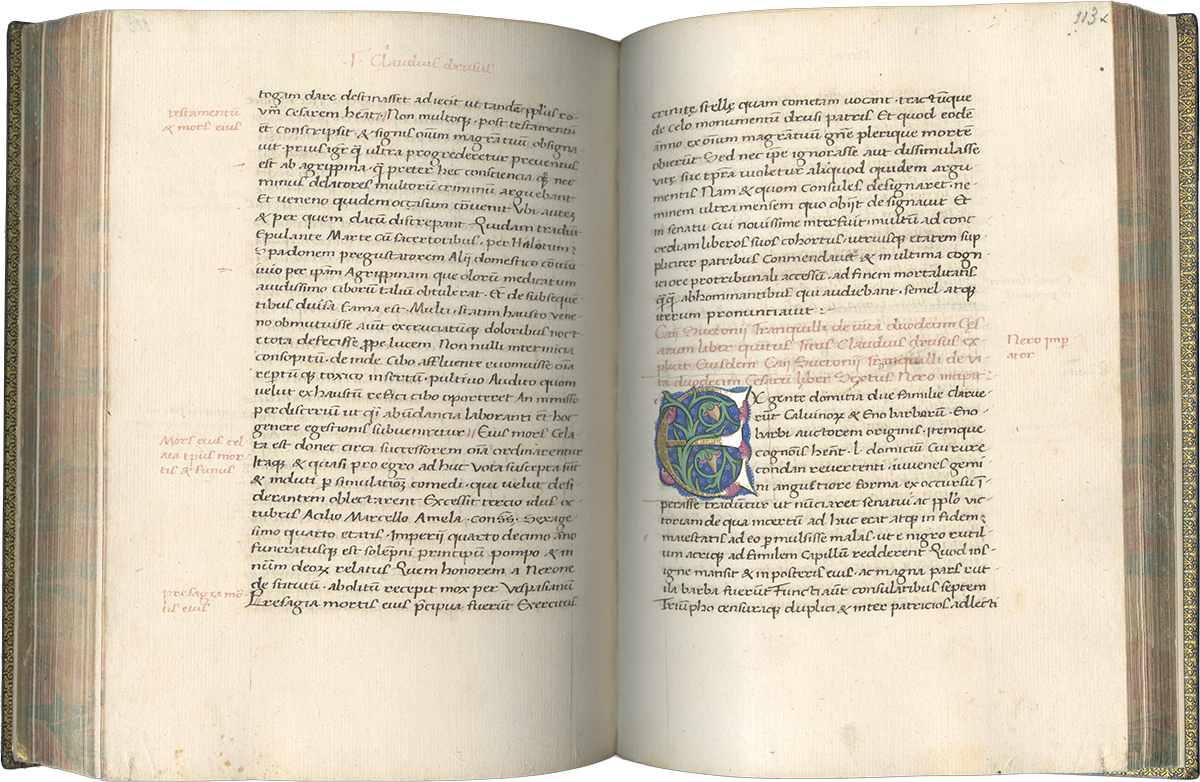 ·T· Claudius drusus
testamentū
& mors eius
togam dare destinasset adiecit ut tandē pplus ro-
vm̄ cesarem hēat · Non multoq; post testamentū
et conscripsit · & signis oīum magratuū obsigna-
vit · prius igr̄ q̄ ultra progrederetur preventus
est ab agrippina · q̄ preter hec consciencia qq; nec
minus delatores multorū criminū arguebant
Et veneno quidem occisum cōvenit Vbi autez
& per quem datū discrepant · Quidam tradūt
Epulante Marte cū sacerdotibus · per Halotum
Spadonem pregustatorem Alij domestico cōviu
uio per ipām Agrippinam que olorū medicatum
avidissimo ciborū talium obtulerat · Et de subseque
tibus divisa fama est · Multi statim hausto vene-
no obmutuisse aiūt excruciatūq; doloribus noct
e tota defecisse ꝓpe lucem · Non nulli inter inicia
consopitū · de inde · Cibo affluente evomuisse oīa
repr̄tūq; toxico insertū · pultivo Audito quom
velut exhaustū refici cibo oporteret An inmisso
per discriū ut qi abūdancia laboranti et hoc
genere egestionis subveniretur // Eius mors Cela-
ta est donec circa successorem oīa ordinarentur
Mors eius cel
ata tp̄us mor
tis & funus
Itaq; & quasi pro egro ad huc vota suscepta sūt
& induti p̄ simulatioq; comedi · qui velut desi-
derantem oblectarent Excessit tercio idus oc-
tubris Acilio Marcello Amela · Conss̄ · Sexage-
simo quarto · etatis · Imperij quarto decimo āno
funeratusq; est solēpni principum pompo & in
nūm deorz relatus Quem honorem a Nerone
destitutū · abolitū recepit mox per Vespasianū
presagia mo-
tis eius
Presagia mortis eius p̄cipua fuerūt Exercitus
113
crinitę stellę quam cometam vocant · tractūque
de celo monumentū drusi patris Et quod eodē
anno ex oīum magratuum gn̄e plerique mortē
obierūt Sed nec ip̄e ignorasse aut dissimulasse
vitę sue tp̄ra videtur aliquod quidem argu-
mentis Nam & quom Consules designaret · ne-
minem ultra mensem quo obijt designavit Et
in senatu Cui novissime interfuit · multū ad conc
ordiam liberos suos cohortus · utriusq; etatem sup
pliciter patribus Commendavit & in ultima cogn
iciore protribunali accessū · ad finem mortalitatis
q̄q̄ abhominantibus qui audiebant · semel atq;
iterum pronunciavit : ~
Caij Suetonij Tranquilli de vita duodecim Cęs
arum liber quītus Titus Claudius drusus ex
plicit Eiusdem Caij Suetonij Tranquilli de vi
ta duodecim Cesarū liber Sextus Nero incipit
Nero imp̄
ator
Ex gente domitia due familie clarue
rūt Calvinorz & Eno barbarū · Eno-
barbi auctorem originis · itemque
cognoīs hēnt · L · domicium Cui rure
condan revertenti · iuvenes gemi
ni angustiore forma ex occursu ī
perasse traduntur ut nūciaret senatui ac pplo vic
toriam de qua incertū ad huc erat atq; in fidem
maiestatis ad eo p̄mulsisse malas · ut e nigro rutil-
um acriq; ad similem Capillū redderent Quod ins-
igne mansit & in posteris eius · ac magna pars rut
ila barba fuerūt Functi aūt consulatibus septem
Triūpho censuraq; duplici & inter patricios adlecti